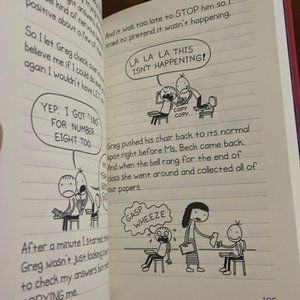 positive about a few of
So I let Greg check
believe me if I could do
again I wouldn't have
YEP, I GOT "180"
FOR NUMBER
EIGHT TOO.
After a minute I started
Greg wasn't just looking
to check my answers but
COPYING me.
And it was too late to STOP him so I
tried to pretend it wasn't happening.
LA LA LA THIS
ISN'T HAPPENING!
COPY
COPY
Greg pushed his chair back to its normal
spot right before Ms. Beck came back.
And when the bell rang for the end of
class she went around and collected all of
our papers.
GASP
WHEEZE